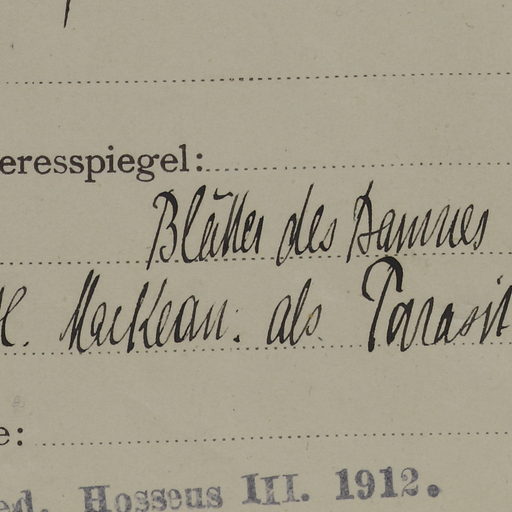 eresspiegel:
Blätter des Baumes
H. MacKean. als Parasit
e:
ed. Hosseus III. 1912.